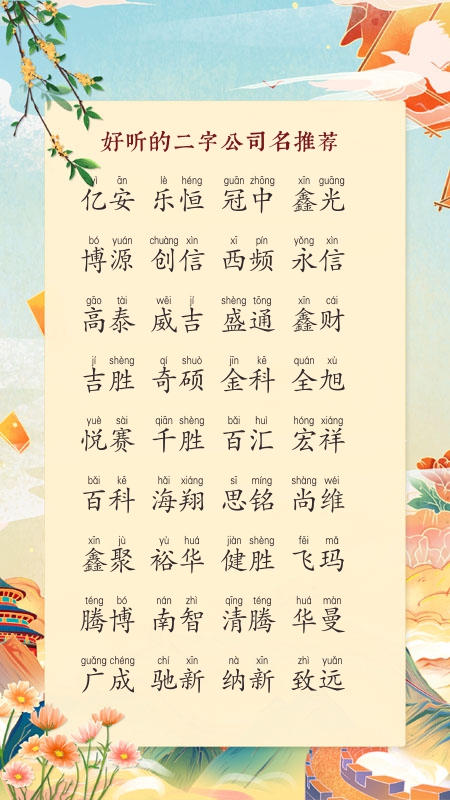 好听的二字公司名推荐
yì ān lè héng guān zhōng xīn guāng
亿安 乐恒 冠中 鑫光
bó yuán chuàng xìn xī pín yǒng xìn
博源 创信 西频 永信
gāo tài wēi jí shèng tōng xīn cái
高泰 威吉 盛通 鑫财
jí shèng qí shuò jīn kē quán xù
吉胜 奇硕 金科 全旭
yuè sài qiān shèng bǎi huì hóng xiáng
悦赛 千胜 百汇 宏祥
bǎi kē hǎi xiáng sī míng shàng wéi
百科 海翔 思铭 尚维
xīn jù yù huá jiàn shèng fēi mǎ
鑫聚 裕华 健胜 飞玛
téng bó nán zhì qīng téng huá màn
腾博 南智 清腾 华曼
guǎng chéng chí xīn nà xīn zhì yuǎn
广成 驰新 纳新 致远